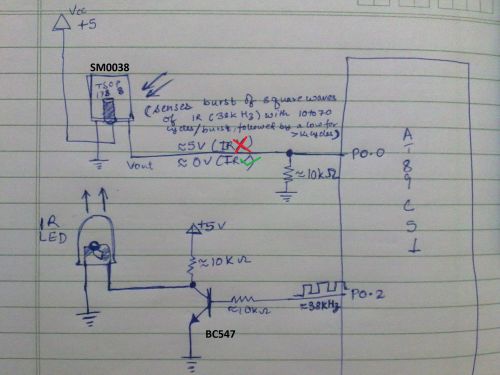 Vcc
+5
SM0038
TSOP
1738
(senses burst of square waves
of IR (38kHz) with 10to70
cycles/burst, followed by a low for
>14cycles)
≈5V (IR
≈0V (IR
Vout
≈10kΩ
P0.0
AT89C51
IR
LED
+5V
≈10kΩ
≈10kΩ
≈38kHz
P0.2
BC547